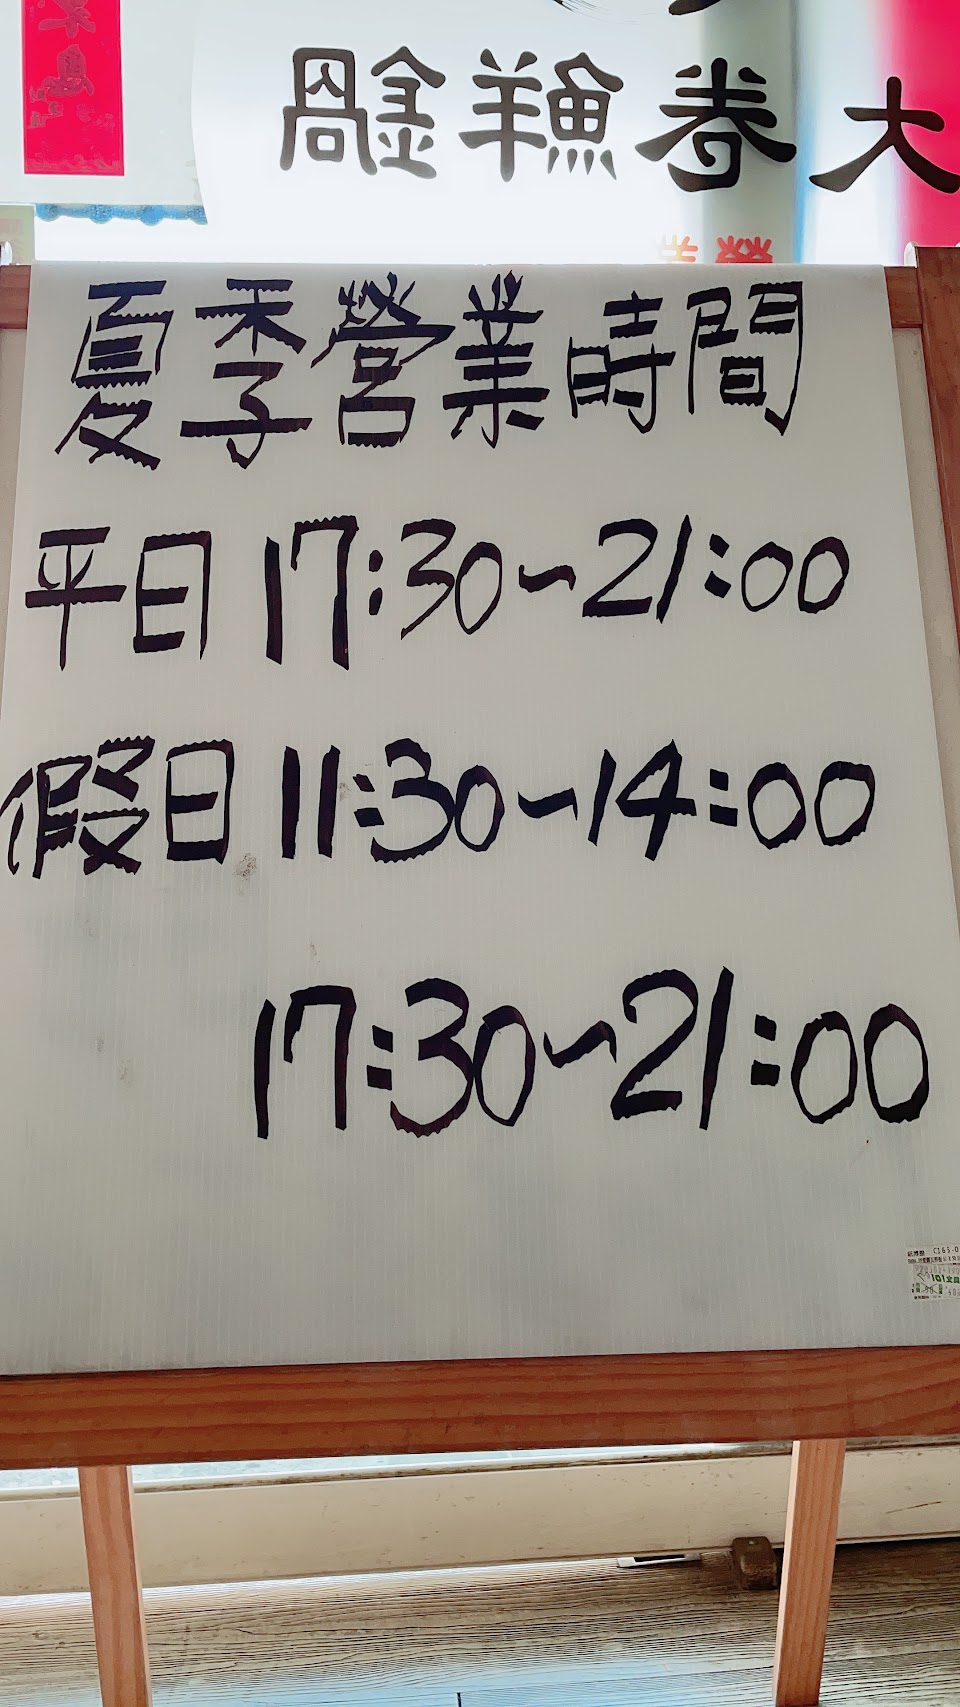 大卷鮮鍋
夏季營業時間
平日 17:30~21:00
假日 11:30~14:00
17:30~21:00
101文具